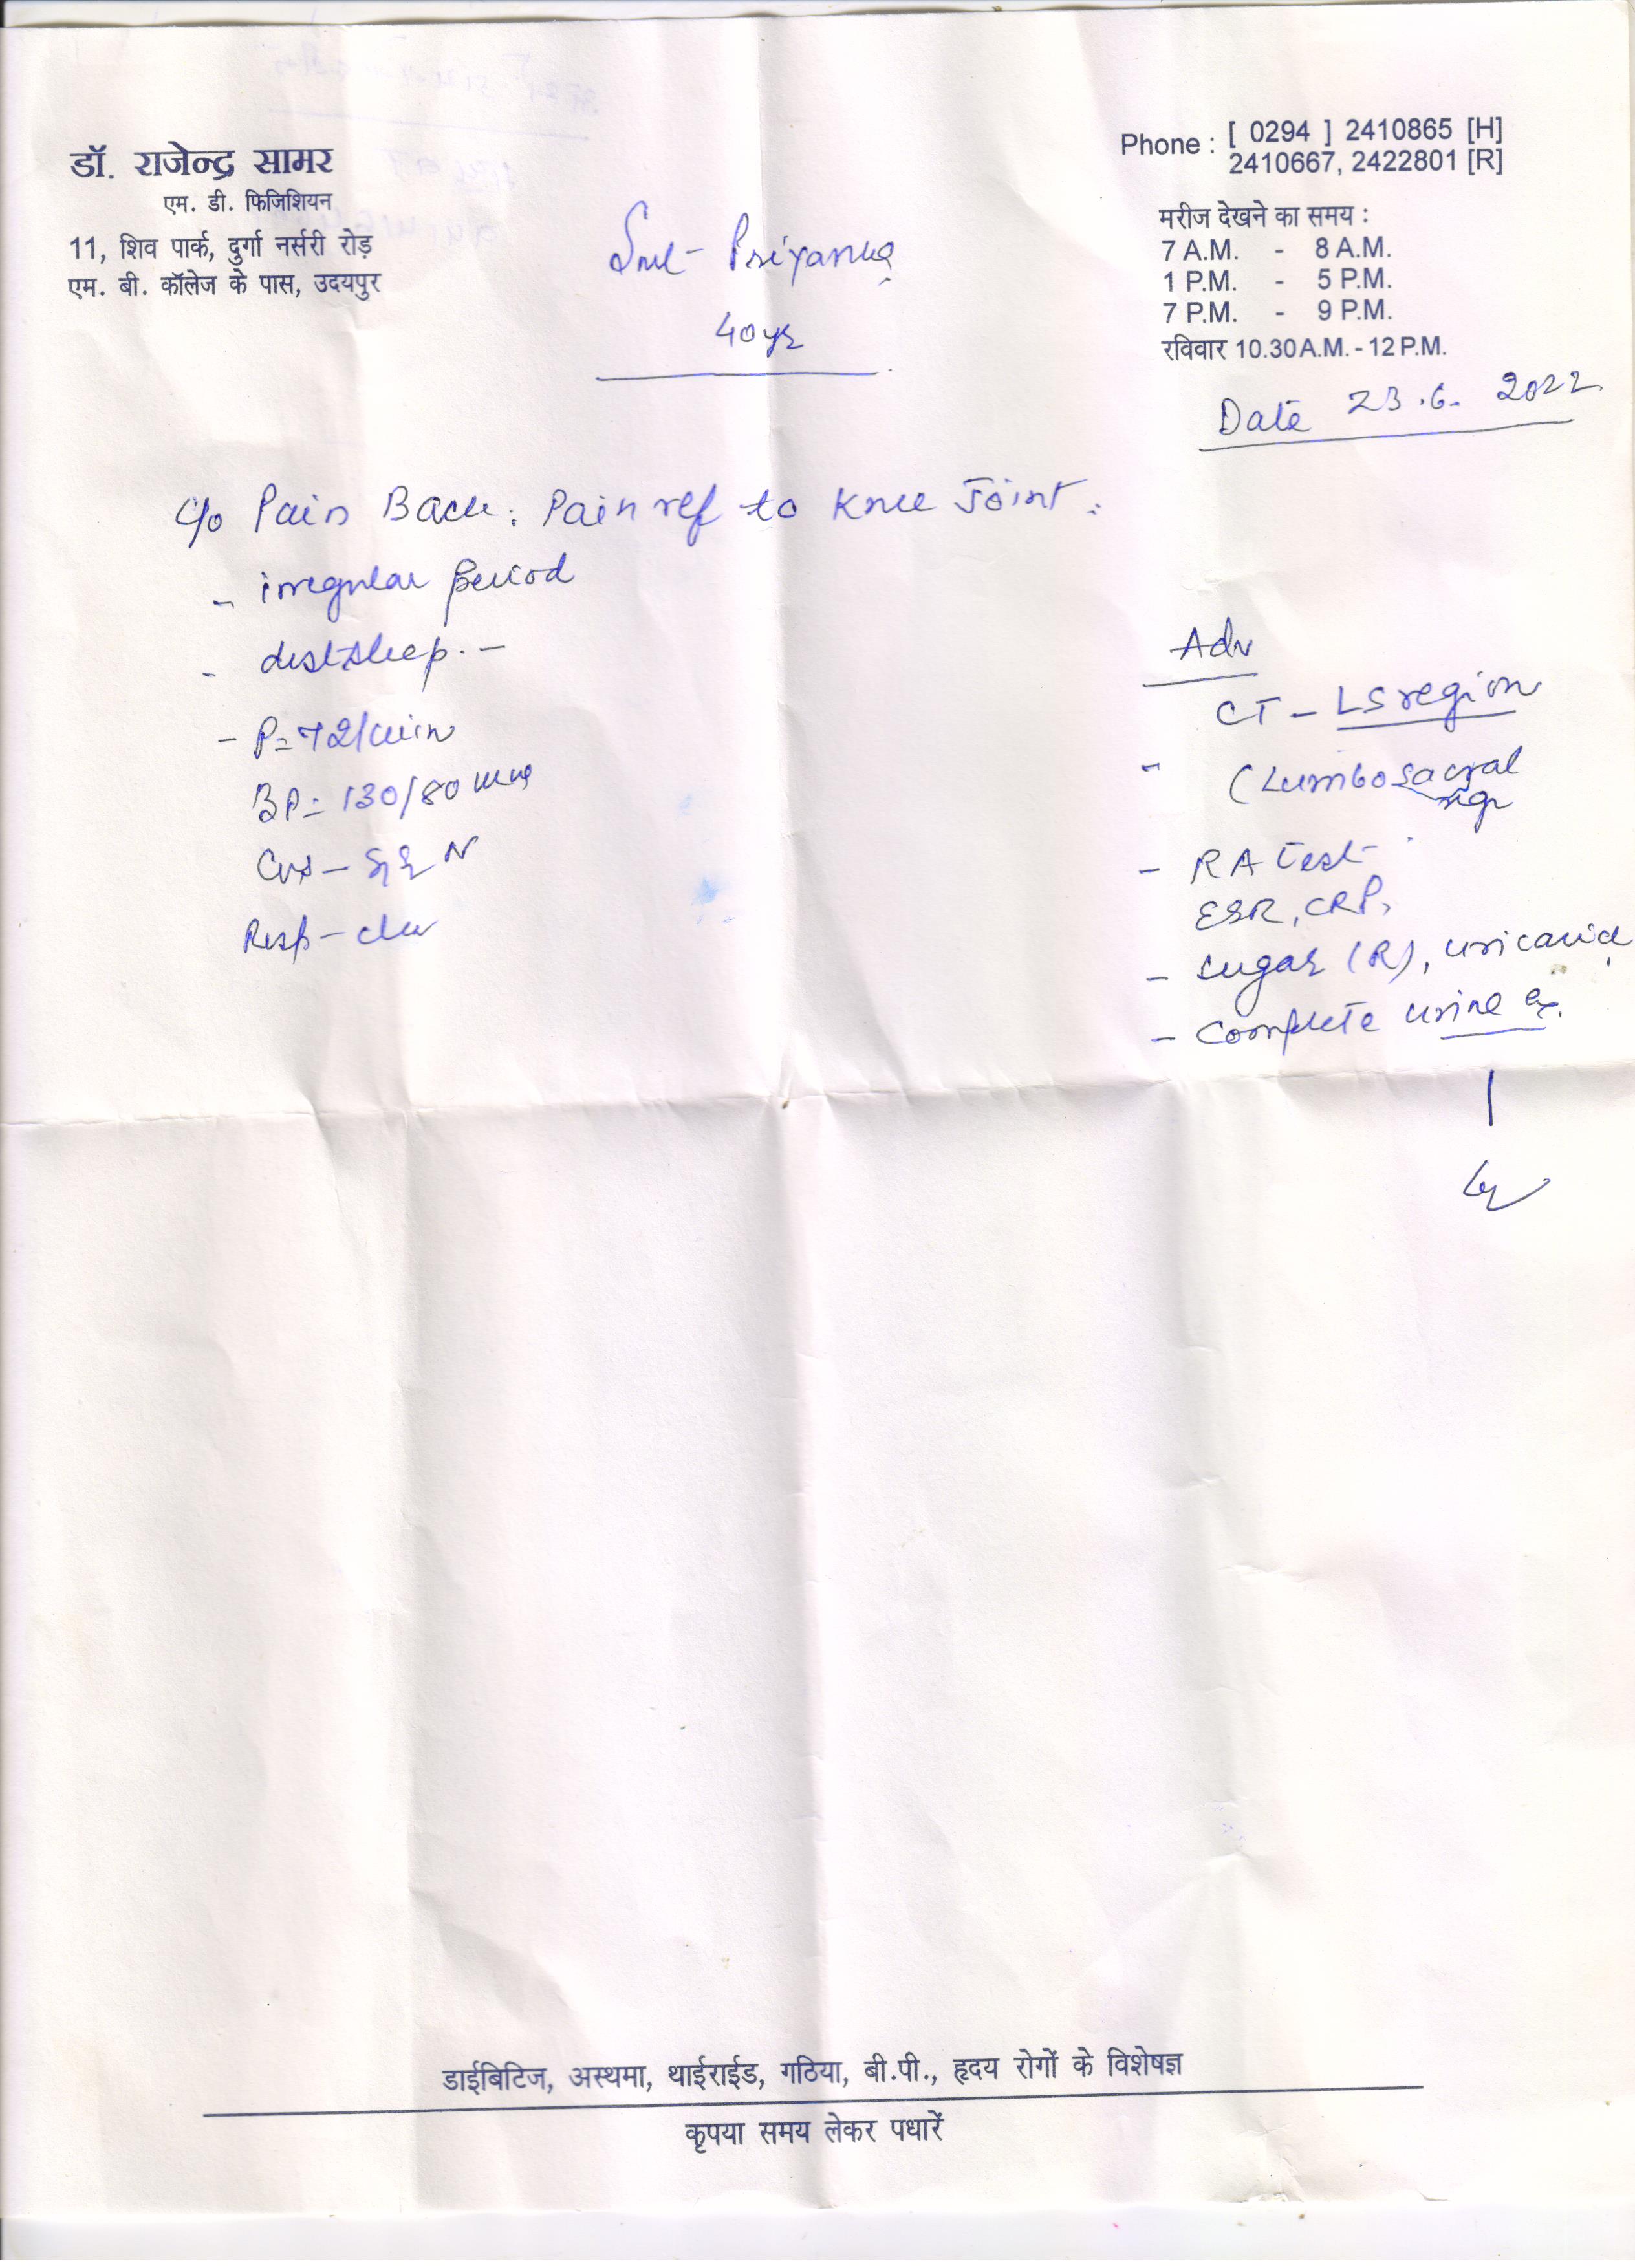 डॉ. राजेन्द्र सामर
एम. डी. फिजिशियन
11, शिव पार्क, दुर्गा नर्सरी रोड़
एम. बी. कॉलेज के पास, उदयपुर
Phone : [ 0294 ] 2410865 [H]
2410667, 2422801 [R]
मरीज देखने का समय :
7 A.M. - 8 A.M.
1 P.M. - 5 P.M.
7 P.M. - 9 P.M.
रविवार 10.30 A.M. - 12 P.M.
Smt - Priyanka
40 yr
Date 23.6.2022
c/o Pain Back: Pain ref to Knee Joint:
- irregular period
- dist sleep. -
- P = 72/min
BP = 130/80
CVS - N
Resp - clear
Adv
CT - LS region
- (Lumbosacral
- RA test
ESR, CRP,
- sugar (R), uric acid
- Complete urine ex.
डाईबिटिज, अस्थमा, थाईराईड, गठिया, बी.पी., हृदय रोगों के विशेषज्ञ
कृपया समय लेकर पधारें